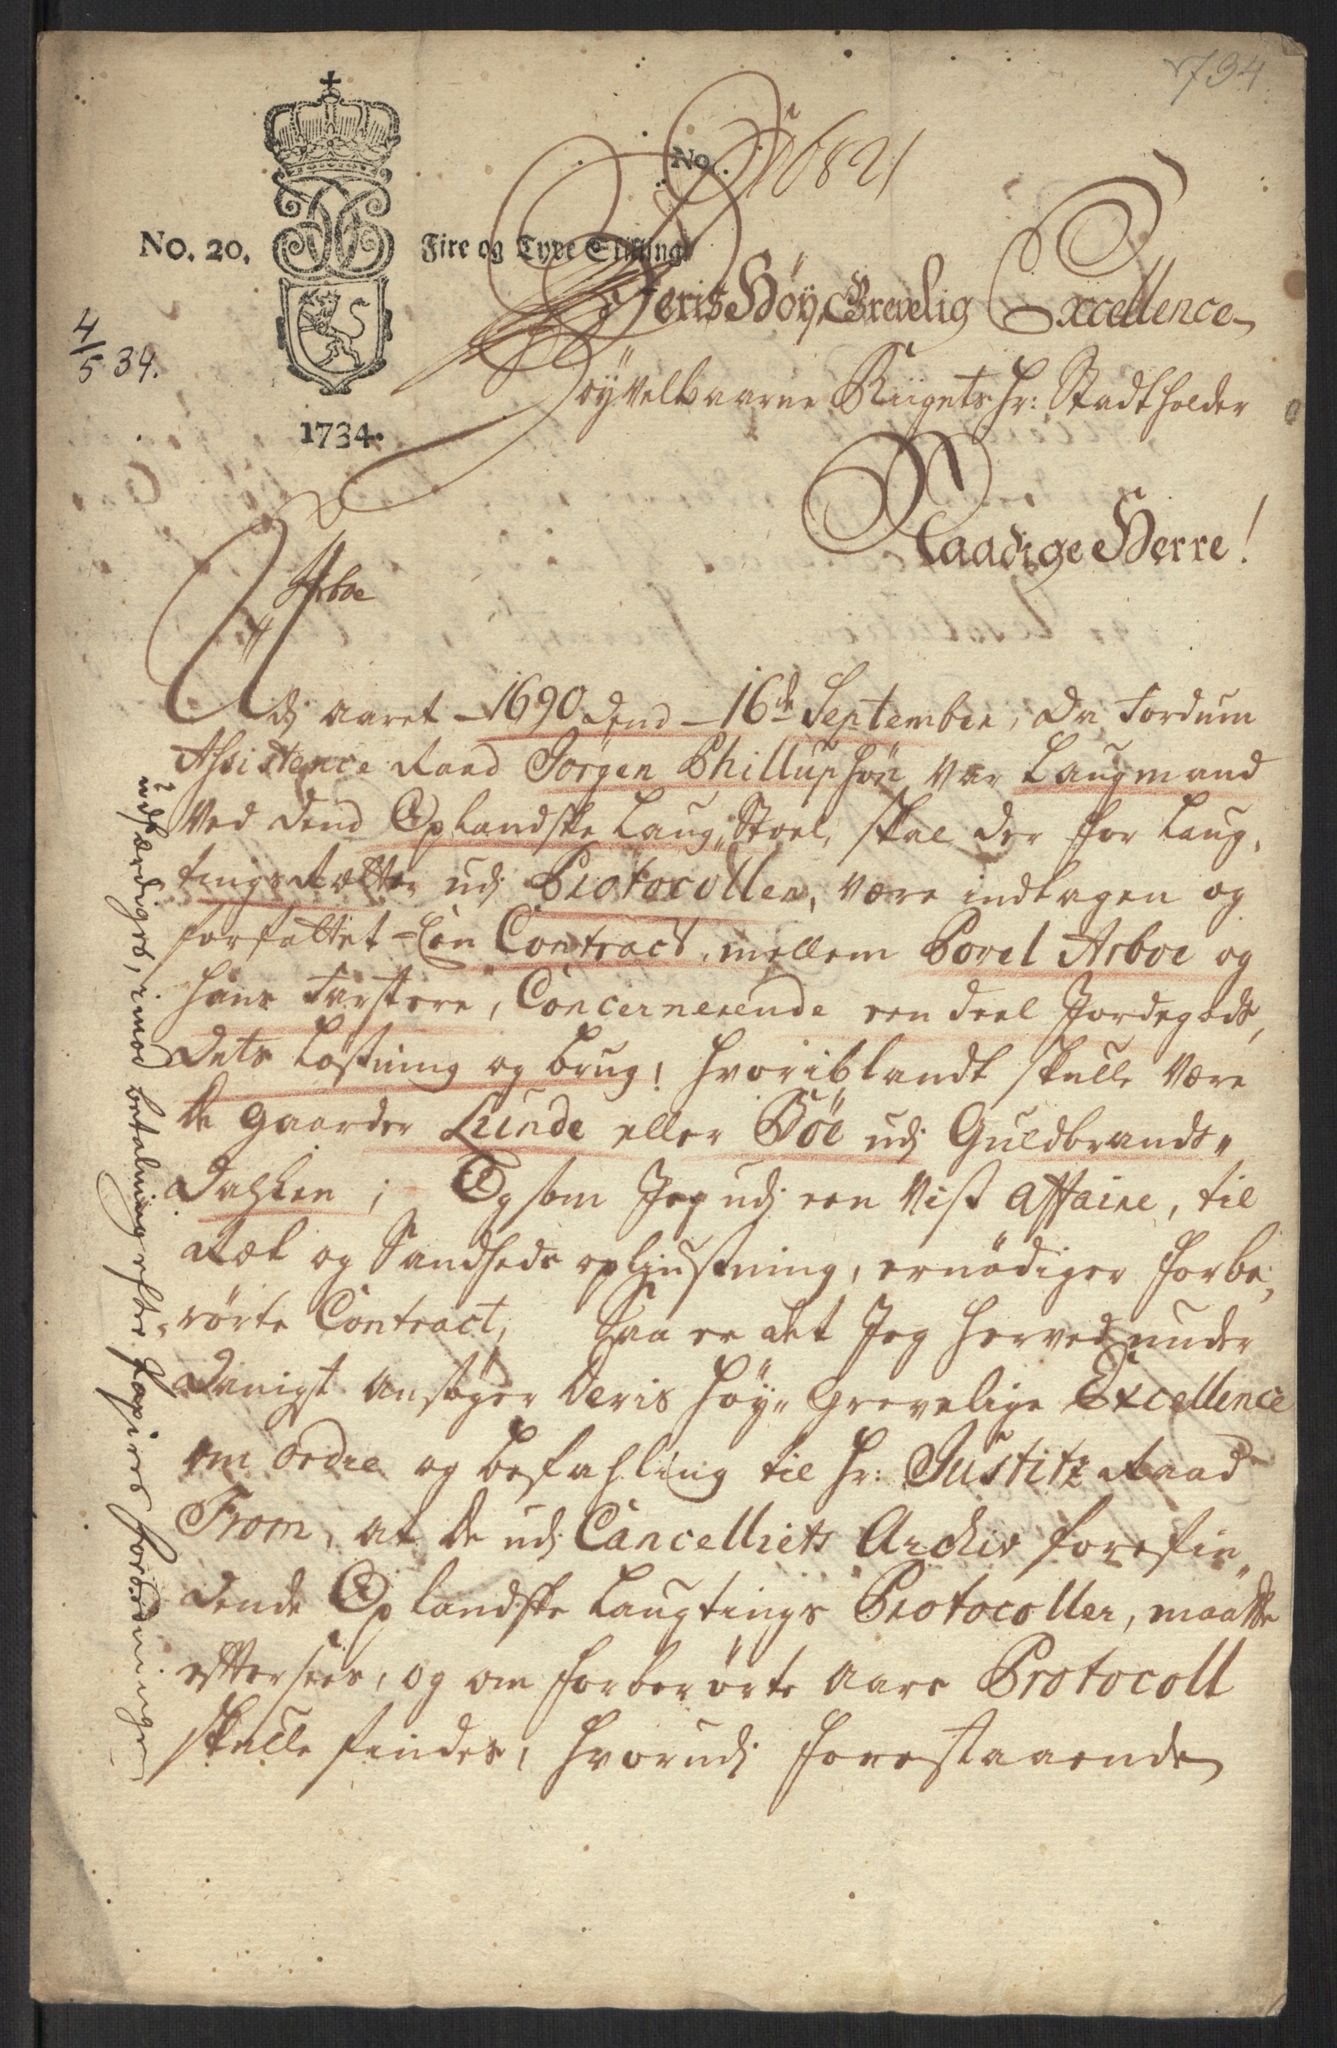 1734
No 1682/
No. 20.
Fire og Tyve Skilling
4/5 34.
1734.
Deris Höy Grevelig Excellence
Höyvelbaarne Riigets Hr: Stadtholder
Naadige Herre!
Arboe
Udj aaret 1690 dend 16de September, da fordum
Assistence Raad Jörgen Phillupsön var Laugmand
ved dend Oplandske Laug„Stoel, skal der for Laug,
tings Retter udj Protocollen, være indtagen og
forfattet Een Contract, mellem Povel Arboe og
hans Farskere, Concernerende een deel Jordegods,
dets Lösning og brug! hvoriblandt skulle være
de gaarder Lunde eller Böe udj Guldbrands„
dahlen; Og som Jeg udj een vist affaire, til
Ræt og Sandheds opljusning, ernödiger forbe„
rörte Contract, Saa er det Jeg herved under
danigst ansöger Deris höy„ Grevelige Excellence
om ordre og befahling til Hr: Justitz Raad
From, at de udj Cancelliets Archiv forefin„
dende Oplandske Laugtings Protocoller, maatte
eftersees, og om forberörte aars Protocoll
skulle findes, hvorudj forestaaende
udfærdiges, imod betalning efter Papiirs forordningen